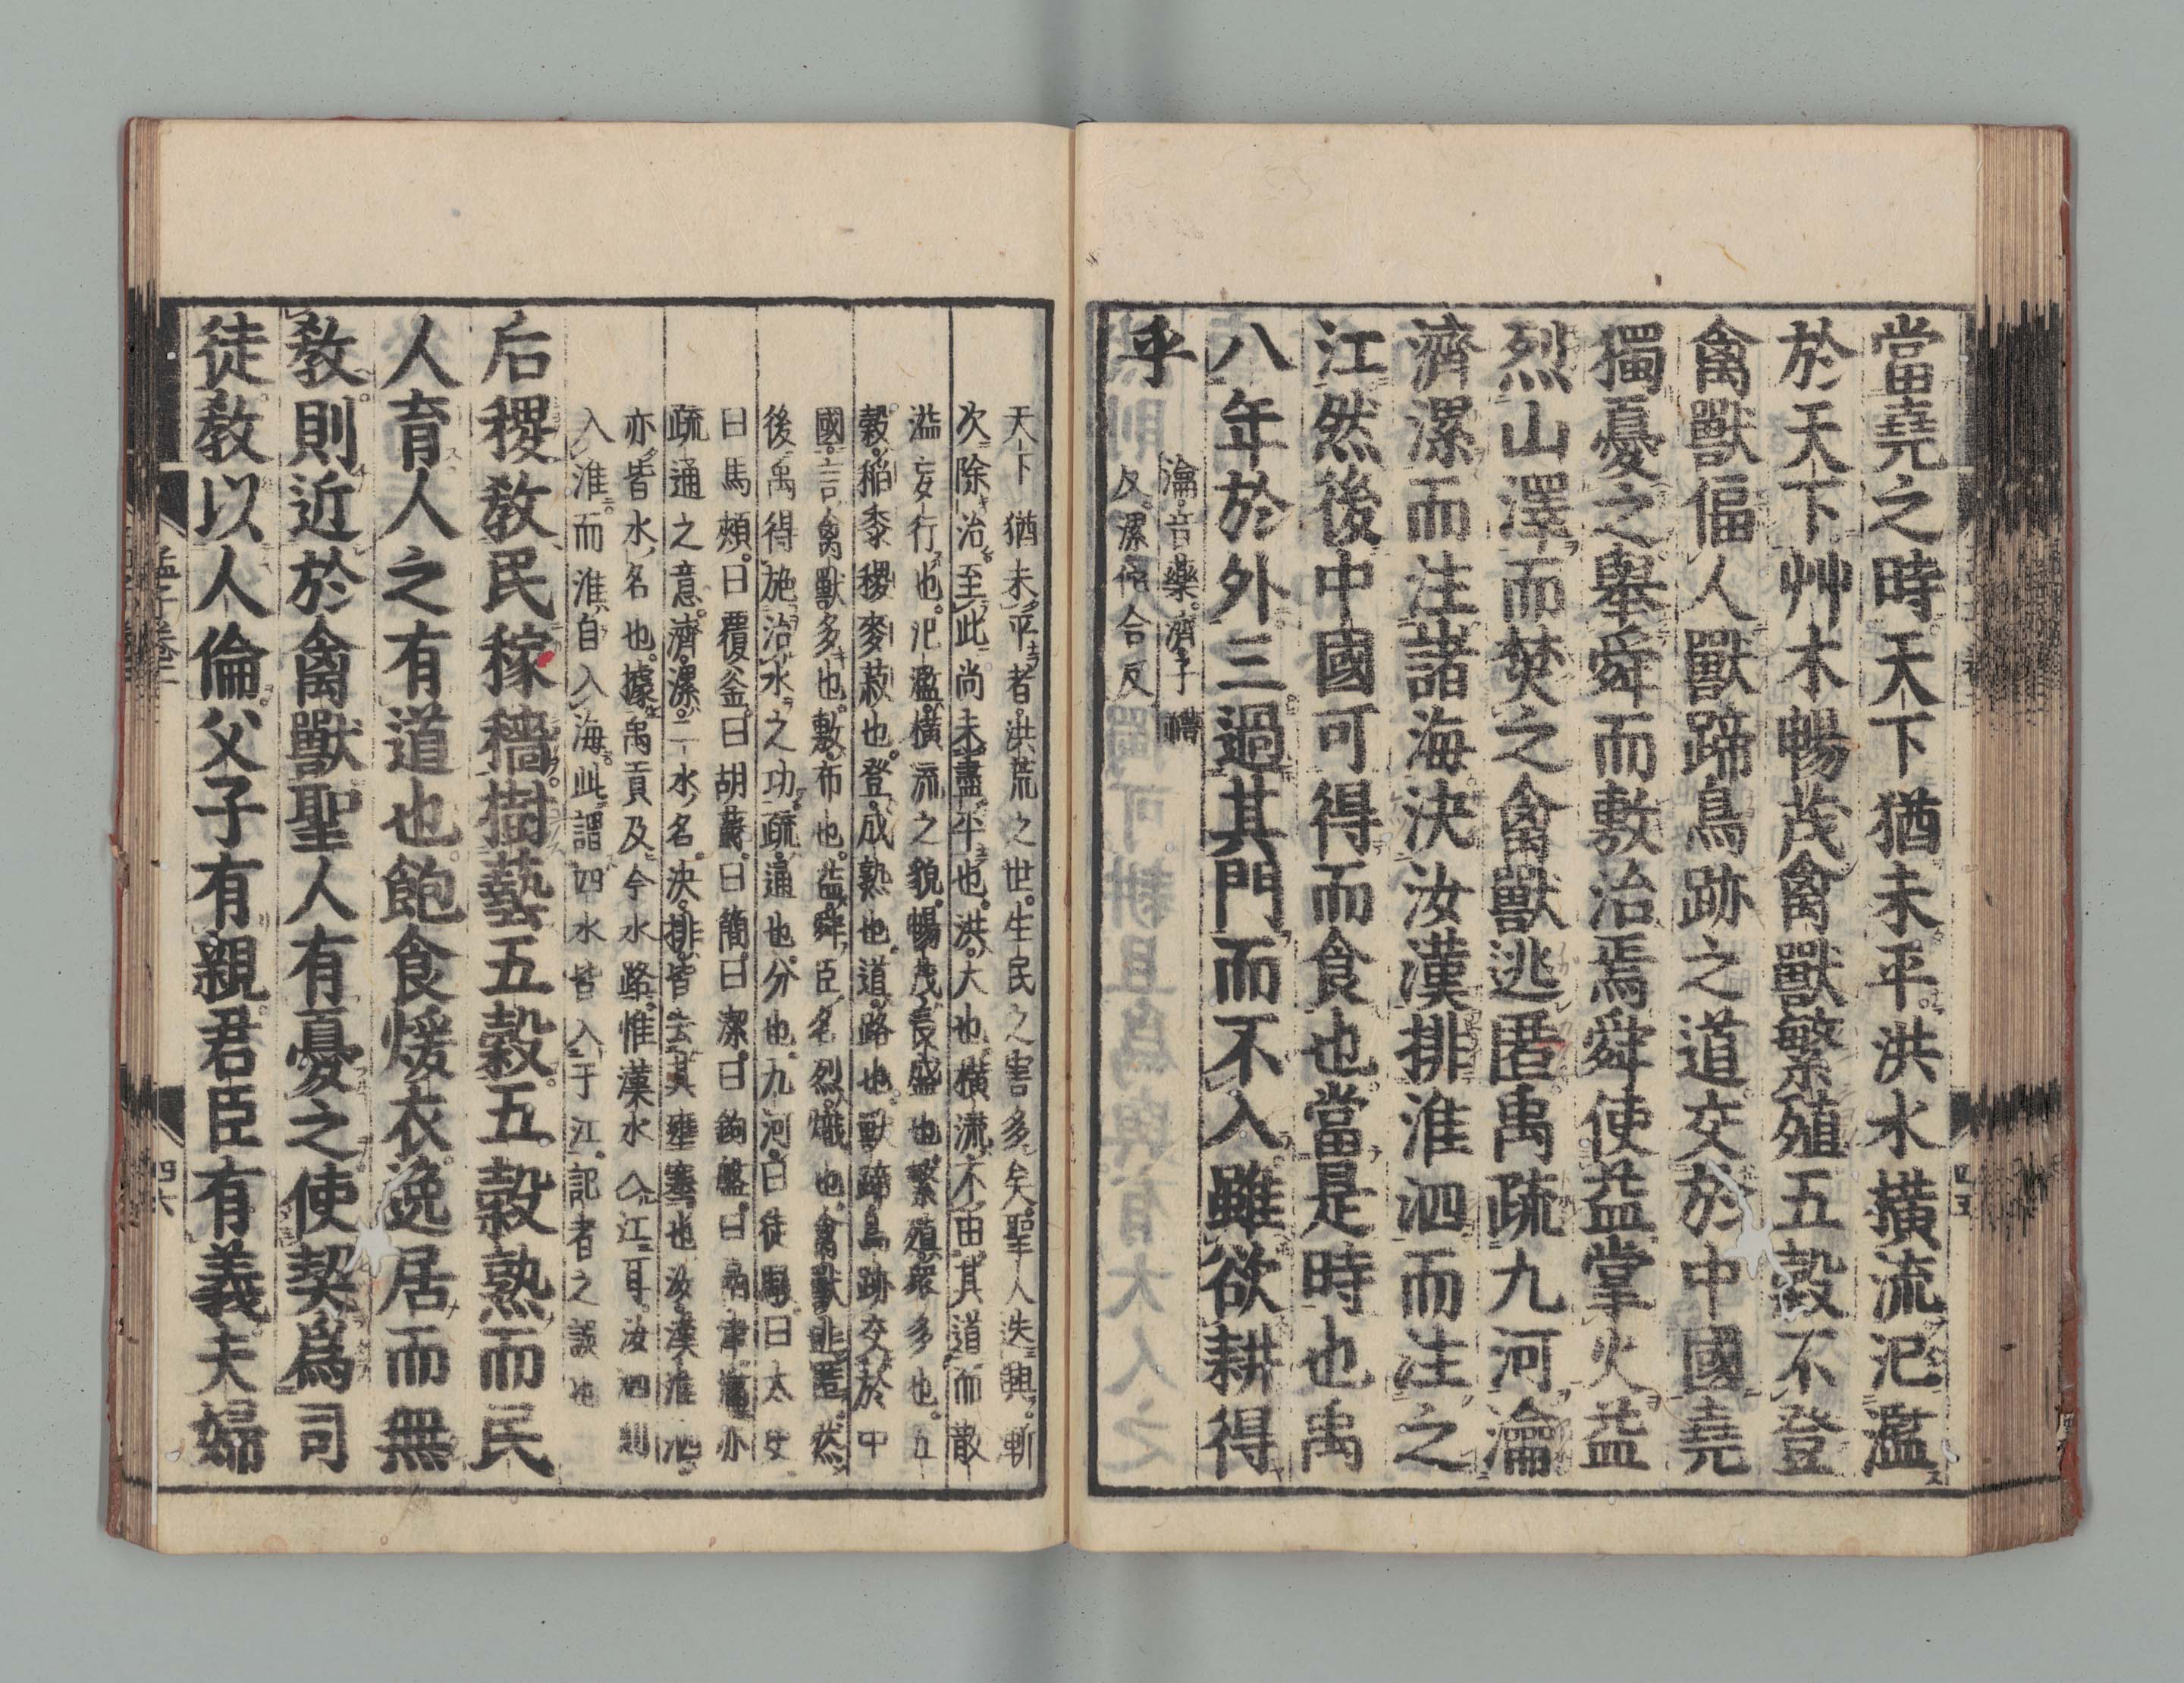 當堯之時天下猶未平洪水横流氾濫
於天下艸木暢茂禽獸繁殖五穀不登
禽獸偪人獸蹄鳥跡之道交於中國堯
獨憂之舉舜而敷治焉舜使益掌火益
烈山澤而焚之禽獸逃匿禹疏九河瀹
濟漯而注諸海決汝漢排淮泗而注之
江然後中國可得而食也當是時也禹
八年於外三過其門而不入雖欲耕得
乎
瀹音藥濟子禮
反漯他合反
天下猶未平者洪荒之世生民之害多矣聖人迭興漸
次除治至此尚未盡平也洪大也横流不由其道而散
溢妄行也氾濫横流之貌暢茂長盛也繁殖衆多也五
穀稲黍稷麥菽也登成熟也道路也獸蹄鳥跡交於中
國言禽獸多也敷布也益舜臣名烈熾也禽獸逃匿然
後禹得施治水之功疏通也分也九河曰徒駭曰太史
曰馬頰曰覆釜曰胡蘇曰簡曰潔曰鉤盤曰鬲津瀹亦
疏通之意濟漯二水名決排皆去其壅塞也汝漢淮泗
亦皆水名也據禹貢及今水路惟漢水入江耳汝泗則
入淮而淮自入海此謂四水皆入于江記者之誤也
后稷敎民稼穡樹藝五穀五穀熟而民
人育人之有道也飽食煖衣逸居而無
敎則近於禽獸聖人有憂之使契爲司
徒敎以人倫父子有親君臣有義夫婦
孟子卷三
四六